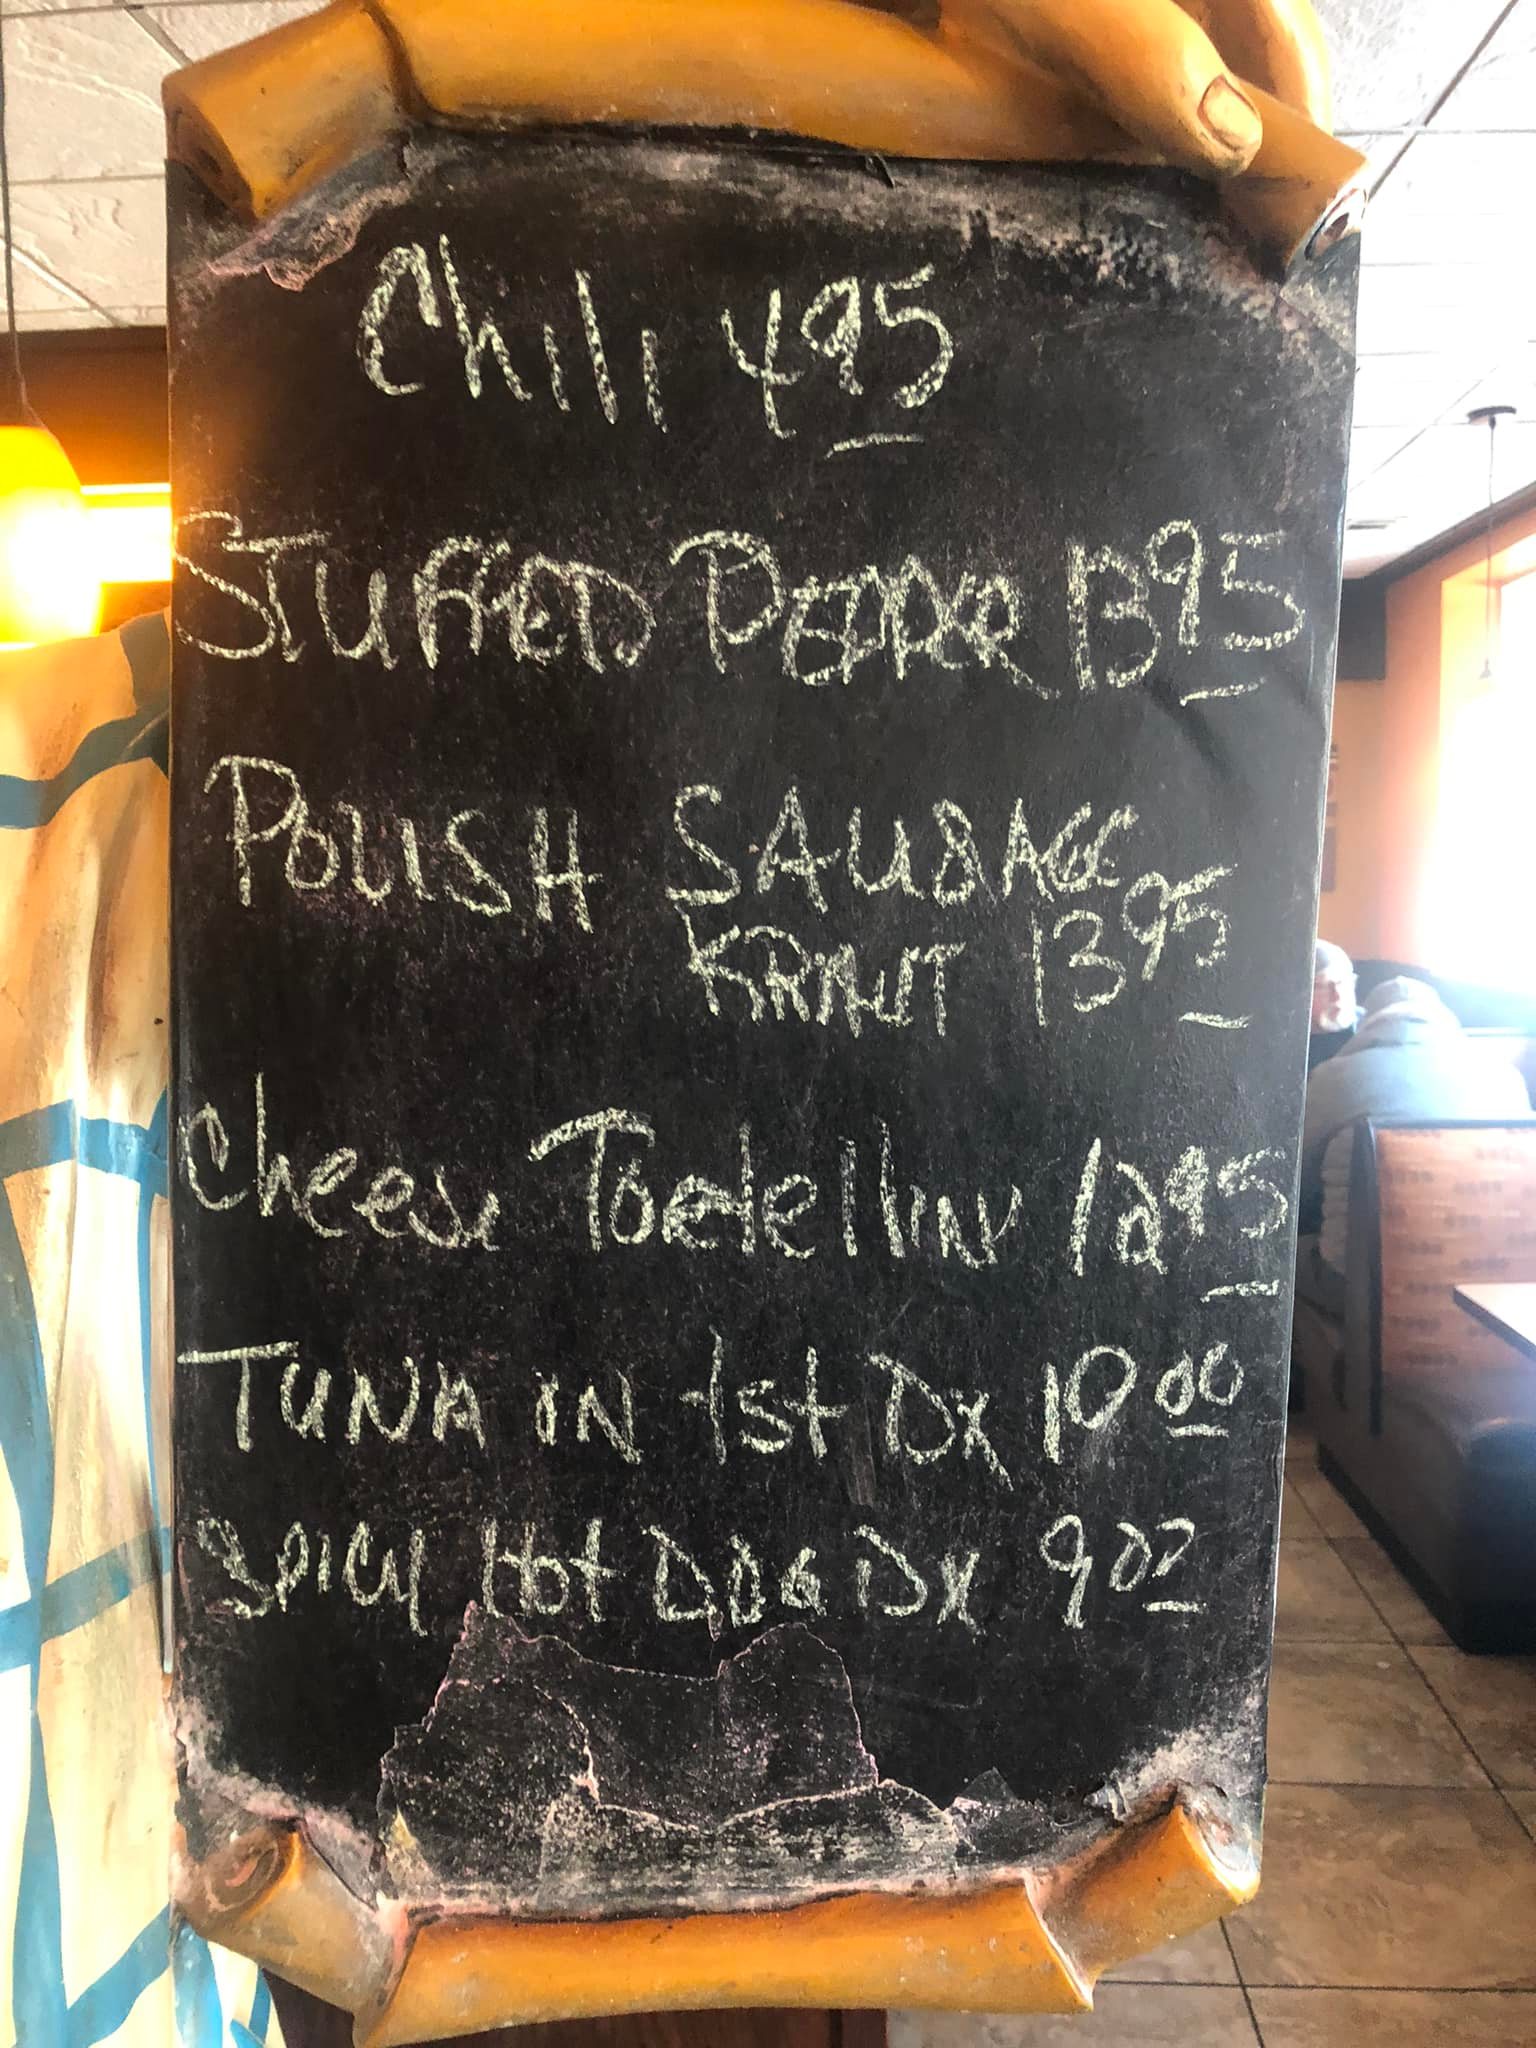 Chili 4 95
STUFFED PEPPER 13 95
POLISH SAUSAGE
KRAUT 13 95
Cheese Tortellini 12 95
TUNA IN 1st Dx 10 00
SPICY Hot DOG Dx 9 00